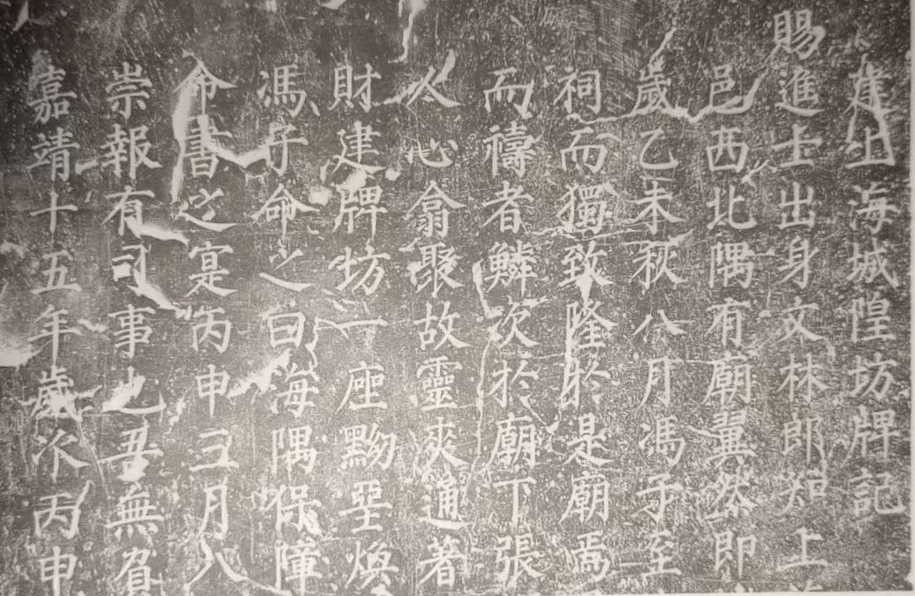 建上海城隍坊牌記
賜進士出身文林郎知上
邑西北隅有廟翼然即
歲乙未秋八月馮子至
祠而獨致隆於是廟焉
而禱者鱗次於廟丁張
人心翕聚故靈爽通著
財建牌坊一座黝堊煥
馮子命之曰海隅保障
命書之寔丙申五月八
崇報有司事也毋無負
嘉靖十五年歲次丙申